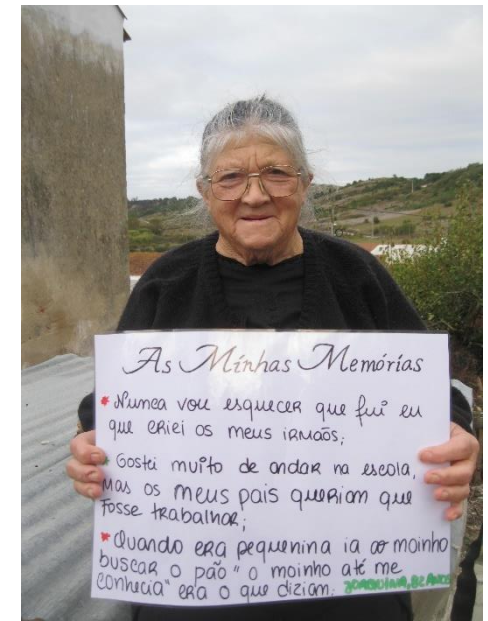 As Minhas Memórias
* Nunca vou esquecer que fui eu
que criei os meus irmãos;
* Gostei muito de andar na escola,
mas os meus pais queriam que
fosse trabalhar;
* Quando era pequenina ia ao moinho
buscar o pão "o moinho até me
conhecia" era o que diziam. JOAQUINA, 82 ANOS